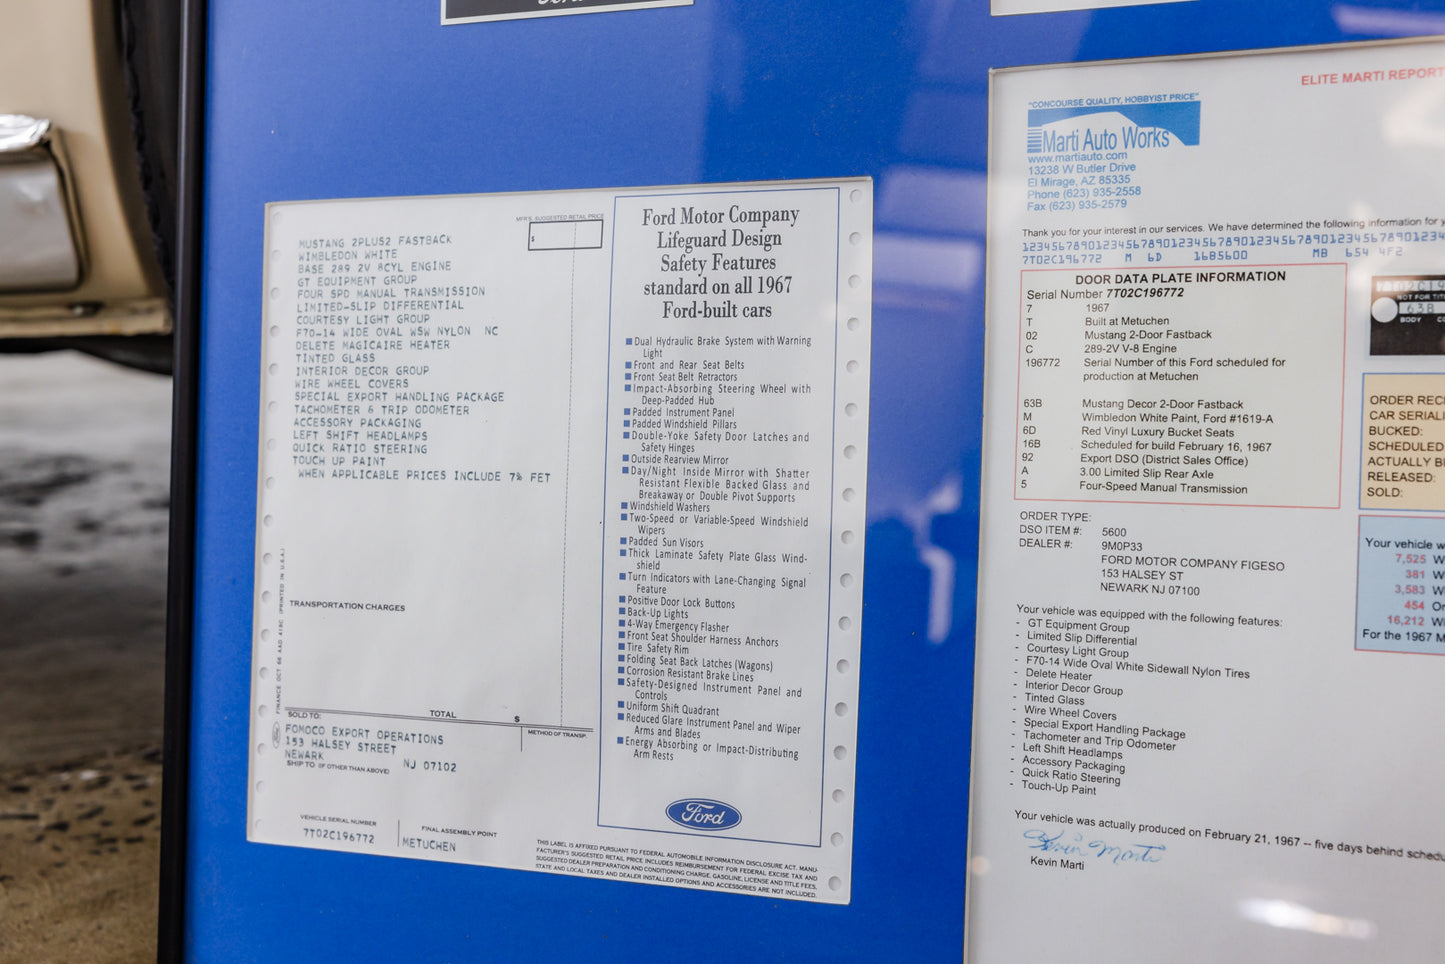 MFR'S. SUGGESTED RETAIL PRICE
$
MUSTANG 2PLUS2 FASTBACK
WIMBLEDON WHITE
BASE 289 2V 8CYL ENGINE
GT EQUIPMENT GROUP
FOUR SPD MANUAL TRANSMISSION
LIMITED-SLIP DIFFERENTIAL
COURTESY LIGHT GROUP
F70-14 WIDE OVAL WSW NYLON NC
DELETE MAGICAIRE HEATER
TINTED GLASS
INTERIOR DECOR GROUP
WIRE WHEEL COVERS
SPECIAL EXPORT HANDLING PACKAGE
TACHOMETER & TRIP ODOMETER
ACCESSORY PACKAGING
LEFT SHIFT HEADLAMPS
QUICK RATIO STEERING
TOUCH UP PAINT
WHEN APPLICABLE PRICES INCLUDE 7% FET
TRANSPORTATION CHARGES
FINANCE OCT 66 AAD 418C (PRINTED IN U.S.A.)
TOTAL $
SOLD TO:
METHOD OF TRANSP.
FOMOCO EXPORT OPERATIONS
153 HALSEY STREET
NEWARK NJ 07102
SHIP TO: (IF OTHER THAN ABOVE)
VEHICLE SERIAL NUMBER
7T02C196772
FINAL ASSEMBLY POINT
METUCHEN
THIS LABEL IS AFFIXED PURSUANT TO FEDERAL AUTOMOBILE INFORMATION DISCLOSURE ACT. MANU-
FACTURER'S SUGGESTED RETAIL PRICE INCLUDES REIMBURSEMENT FOR FEDERAL EXCISE TAX AND
SUGGESTED DEALER PREPARATION AND CONDITIONING CHARGE. GASOLINE, LICENSE AND TITLE FEES,
STATE AND LOCAL TAXES AND DEALER INSTALLED OPTIONS AND ACCESSORIES ARE NOT INCLUDED.
Ford Motor Company
Lifeguard Design
Safety Features
standard on all 1967
Ford-built cars
Dual Hydraulic Brake System with Warning
Light
Front and Rear Seat Belts
Front Seat Belt Retractors
Impact-Absorbing Steering Wheel with
Deep-Padded Hub
Padded Instrument Panel
Padded Windshield Pillars
Double-Yoke Safety Door Latches and
Safety Hinges
Outside Rearview Mirror
Day/Night Inside Mirror with Shatter
Resistant Flexible Backed Glass and
Breakaway or Double Pivot Supports
Windshield Washers
Two-Speed or Variable-Speed Windshield
Wipers
Padded Sun Visors
Thick Laminate Safety Plate Glass Wind-
shield
Turn Indicators with Lane-Changing Signal
Feature
Positive Door Lock Buttons
Back-Up Lights
4-Way Emergency Flasher
Front Seat Shoulder Harness Anchors
Tire Safety Rim
Folding Seat Back Latches (Wagons)
Corrosion Resistant Brake Lines
Safety-Designed Instrument Panel and
Controls
Uniform Shift Quadrant
Reduced Glare Instrument Panel and Wiper
Arms and Blades
Energy Absorbing or Impact-Distributing
Arm Rests
Ford
ELITE MARTI REPORT
"CONCOURSE QUALITY, HOBBYIST PRICE"
Marti Auto Works
www.martiauto.com
13238 W Butler Drive
El Mirage, AZ 85335
Phone (623) 935-2558
Fax (623) 935-2579
Thank you for your interest in our services. We have determined the following information for
1234567890123456789012345678901234567890123456789012345678901234
7T02C196772 M 6D 16B5600 MB 654 4F2
DOOR DATA PLATE INFORMATION
Serial Number 7T02C196772
7 1967
T Built at Metuchen
02 Mustang 2-Door Fastback
C 289-2V V-8 Engine
196772 Serial Number of this Ford scheduled for
production at Metuchen
63B Mustang Decor 2-Door Fastback
M Wimbledon White Paint, Ford #1619-A
6D Red Vinyl Luxury Bucket Seats
16B Scheduled for build February 16, 1967
92 Export DSO (District Sales Office)
A 3.00 Limited Slip Rear Axle
5 Four-Speed Manual Transmission
7T02C19
NOT FOR TIT
63B
BODY
ORDER RECE
CAR SERIAL
BUCKED:
SCHEDULED
ACTUALLY B
RELEASED:
SOLD:
ORDER TYPE:
DSO ITEM #: 5600
DEALER #: 9M0P33
FORD MOTOR COMPANY FIGESO
153 HALSEY ST
NEWARK NJ 07100
Your vehicle w
7,525 W
381 W
3,583 W
454 Or
16,212 Wi
For the 1967 M
Your vehicle was equipped with the following features:
- GT Equipment Group
- Limited Slip Differential
- Courtesy Light Group
- F70-14 Wide Oval White Sidewall Nylon Tires
- Delete Heater
- Interior Decor Group
- Tinted Glass
- Wire Wheel Covers
- Special Export Handling Package
- Tachometer and Trip Odometer
- Left Shift Headlamps
- Accessory Packaging
- Quick Ratio Steering
- Touch-Up Paint
Your vehicle was actually produced on February 21, 1967 -- five days behind schedu
Kevin Marti
Kevin Marti